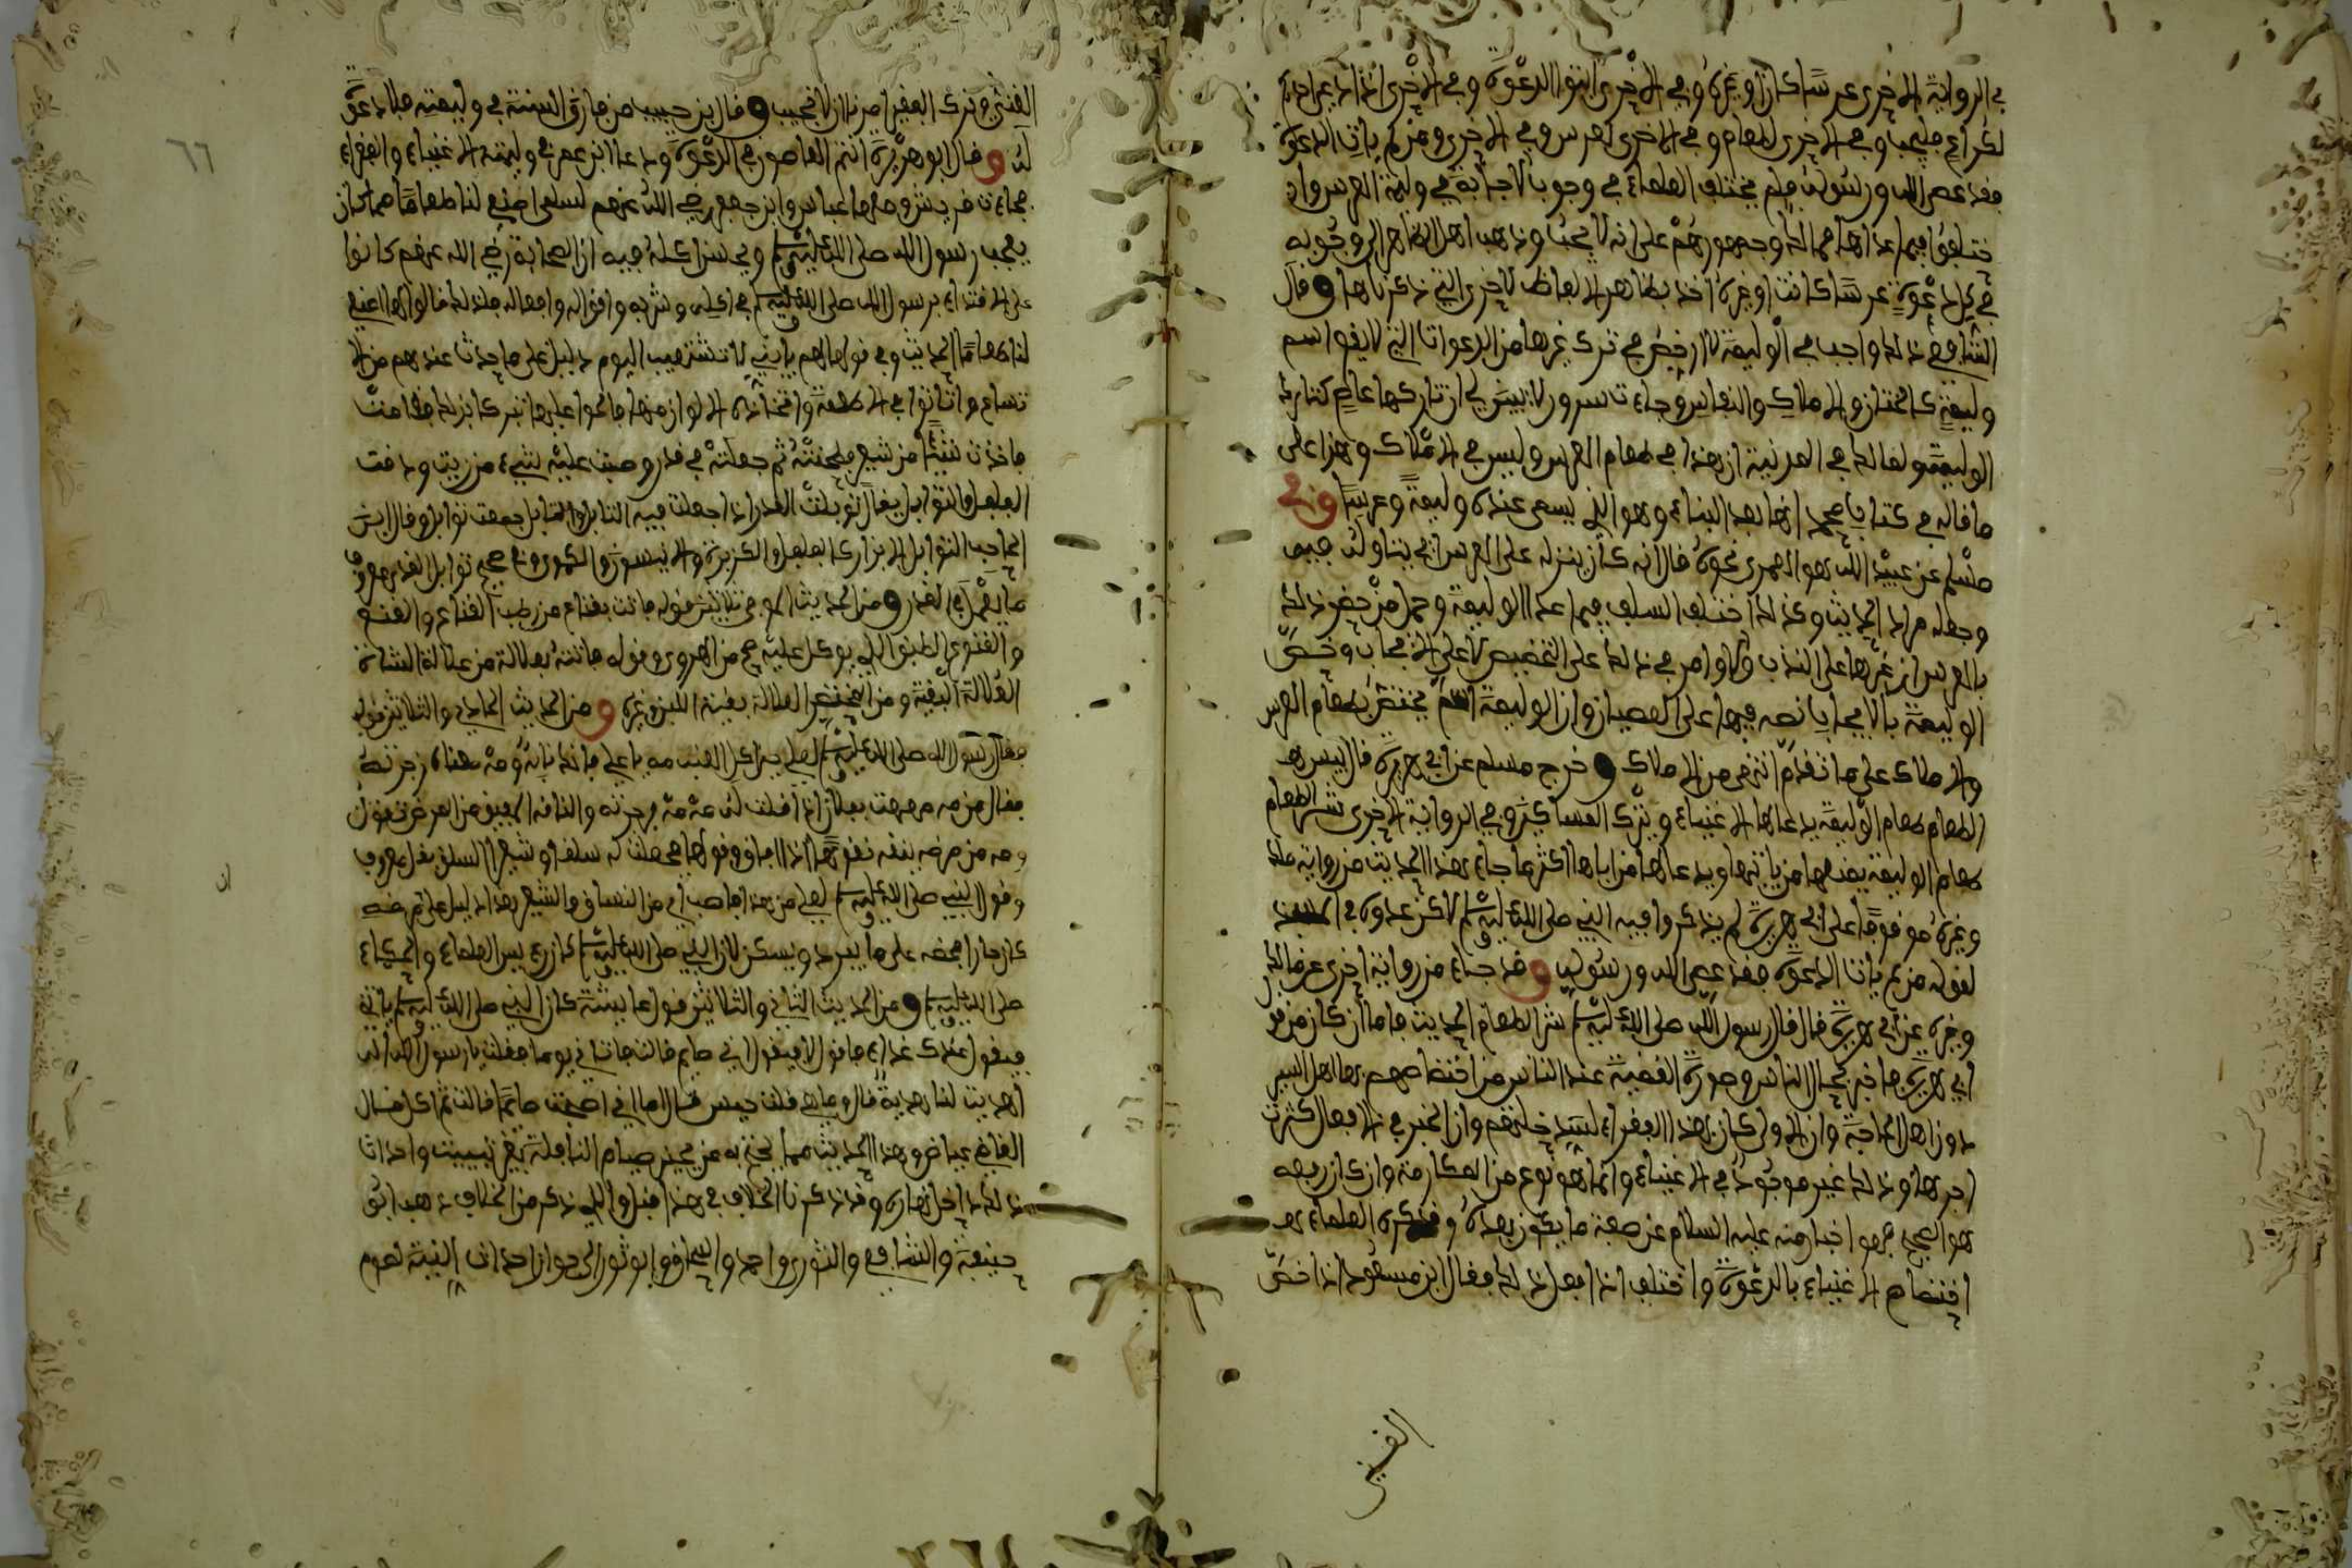 في الرواية الاخرى عرسا كان او غيره وفي الاخرى ائتوا الدعوة وفي الاخرى اذا دعي احدكم
لكراع فليجب وفي الاخرى لطعام وفي الاخرى لعرس وفي الاخرى ومن لم يات الدعوة
فقد عصى الله ورسوله فلم يختلف العلماء في وجوب الاجابة في وليمة العرس وا
ختلفوا فيما عداها فمالك وجمهورهم على انه لا يجب وذهب اهل الظاهر الى وجوبه
في كل دعوة عرسا كانت او غيره اخذ بظاهر الالفاظ الاخرى التي ذكرناها وقال
الشافعي ذلك واجب في الوليمة لا ارخص في ترك غيرها من الدعوات التي لا يقع اسم
وليمة كالختان والاملاك والنفاس وحادث سرور لا يتبين لي ان تاركها عاص كتارك
الوليمة ولمالك في المدنية ان هذا في طعام العرس وليس في الاملاك وهذا على
ما قاله في كتاب محمد انها بعد البناء وهو الذي يسمى عنده وليمة وعرسا وفي
مسلم عن عبيد الله هو العمري نحوه قال انه كان ينزله على العرس اي يتاوله فيه
وجعله مراد الحديث وكذلك اختلف السلف فيما عدا الوليمة وحمل من خص ذلك
بالعرس ان غيرها على الندب والاوامر في ذلك على التخصيص لا على الايجاب وخص
الوليمة بالايجاب نصه فيها على العصيان وان الوليمة اسم يختص بطعام العرس
والاملاك على ما تقدم انتهى من الاملاك وخرج مسلم عن ابي هريرة قال بيس هـ
الطعام طعام الوليمة يدعى لها الاغنياء ويترك المساكين وفي الرواية الاخرى شر الطعام
طعام الوليمة يمنعها من ياتيها ويدعى لها من ياباها اكثر ما جاء هذا الحديث من رواية ملك
وغيره موقوفا على ابي هريرة لم يذكروا فيه النبي صلى الله عليه وسلم لاكن عدوه في
لقوله من لم يات الدعوة فقد عصى الله ورسوله وقد جاء من رواية اخرى عن مالك
وغيره عن ابي هريرة قال قال رسول الله صلى الله عليه وسلم شر الطعام الحديث فاما ان كان من قو
ابي هريرة فاخبر بحال الناس وصورة القضية عند الناس من اختصاصهم بها اهل اليسر
دون اهل الحاجة وان الاولى كان بهذا الفقراء لسد خلتهم وان الخير في الافعال كثرت
اجرها وذلك غير موجود في الاغنياء وانما هو نوع من المكارمة وان كان رفعه
هو الصحيح فهو اخبار منه عليه السلام عن صفة ما يكون بعده وقد كره العلماء هـ
اختصاص الاغنياء بالدعوة واختلف اذا فعل ذلك فقال ابن مسعود اذا خص
الغني
الغني وترك الفقير امرنا ان لا نجيب وقال بن حبيب من فارق السنة في وليمته فلا دعوة
له وقال ابو هريرة انتم العاصون في الدعوة ودعا ابن عمر في وليمته الاغنياء والفقراء
فجاءت قريش ومعها عباس وابن جعفر رضي الله عنهم لسلمى اصنعي لنا طعاما مما كان
يعجب رسول الله صلى الله عليه وسلم ويحسن اكله فيه ان الصحابة رضي الله عنهم كانوا
على الاقتداء برسول الله صلى الله عليه وسلم في اكله وشربه واقواله وافعاله فلذلك قالوا لها اصنعي
لنا طعاما الحديث وفي قولها لهم يا بني لا تشتهيه اليوم دليل على ما حدث عندهم من الا
تساع والتانق في الاطعمة واتخاذ الالوان منها فالحوا عليها تبركا بذلك فقامت
فاخذت شيئا من شعير فطحنته ثم جعلته في قدر وصبت عليه شيء من زيت ودقت
الفلفل والتوابل يقال توبلت القدر اذا جعلت فيه التابل والتابل جمعه توابل وقال ابن
الحاجب التوابل الابزار كالفلفل والكزبرة والانيسون والكمون صح توابل القدر معروف
ما يقع في القدر ومن الحديث الموفي ثلاثين قوله فاتت بقناع من رطب القناع والقنع
والقنوع الطبق الذي يوكل عليه صح من الهروي وقوله فاتته بعلالة من علالة الشاة
العلالة البقية ومن المختصر العلالة بقية اللبن وغيره ومن الحديث الحادي والثلاثين قوله
فقال رسول الله صلى الله عليه وسلم لعلي مه يا علي فانك ناقه ومه هنا زجرته
فقال من مه مهمهت بفلان اذا قلت له مه مه وزجرته والناقه المفيق من المرض تقول
نقه من مرضه ينقه نقوها اذا افاق وقولها فجعلت له سلقا وشعيرا السلق بقل معروف
وقول النبي صلى الله عليه وسلم لعلي من هذا فاصب اي من السلق والشعير هذا دليل على
كان جار امحضه على ما يبرد ويسكن لان النبي صلى الله عليه وسلم كان رئيس العلماء والحكماء
صلى الله عليه وسلم ومن الحديث الثاني والثلاثين قول عايشة كان النبي صلى الله عليه وسلم ياتيني
فيقول اعندك غداء فاقول لا فيقول اني صايم قالت فاتاني يوما فقلت يا رسول الله انه
اهديت لنا هدية قال وما هي قلت حيس قال اما اني اصبحت صائما قالت ثم اكل قال
القاضي عياض وهذا الحديث مما يحتج به من يجيز صيام النافلة بغير تبييت واحداث
ذلك داخل نهاره وقد ذكرنا الخلاف في هذا قبل والذي ذكر من الخلاف ذهب ابو
حنيفة والشافعي والثوري واحمد واسحاق وابو ثور الى جواز احداث النية لصوم
ان
٦٦